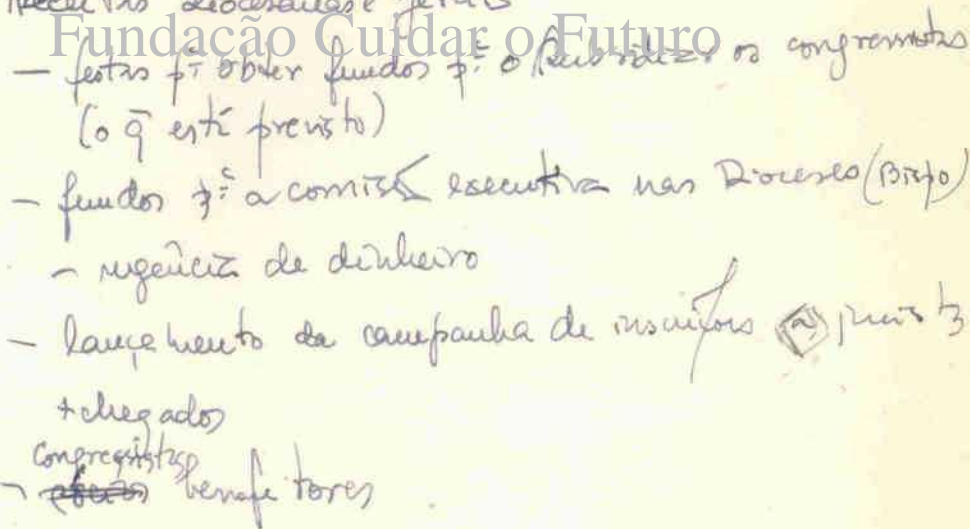 Receitas diocesanas e gerais
Fundação Cuidar o Futuro
— festas pª obter fundos pª o subsidiar os congressistas
(o q̄ está previsto)
— fundos pª a comissão executiva nas Dioceses (Bispo)
— urgência de dinheiro
— lançamento da campanha de inscrições
+ chegados
congressistas
— benfeitores